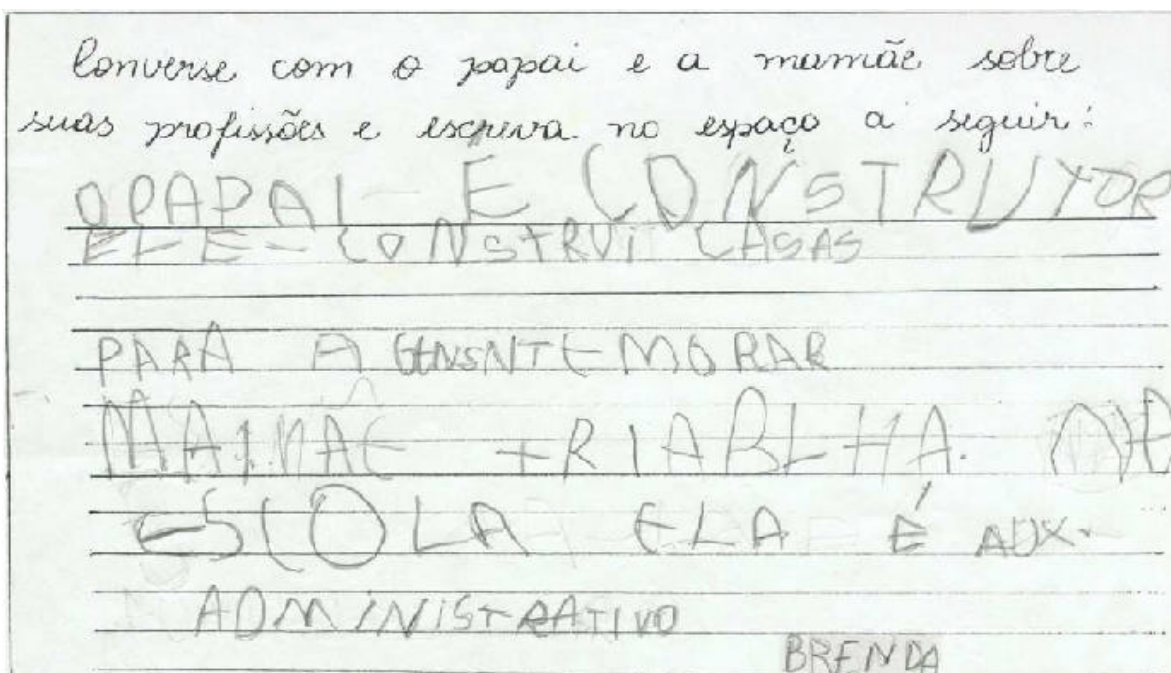 Converse com o papai e a mamãe sobre
suas profissões e escreva no espaço a seguir:
O PAPAI É CONSTRUTOR
ELE CONSTRUI CASAS
PARA A GENSNTE MORAR
MAMÃE TRIABLHA NA
ESCOLA ELA É AUX.
ADMINISTRATIVO
BRENDA